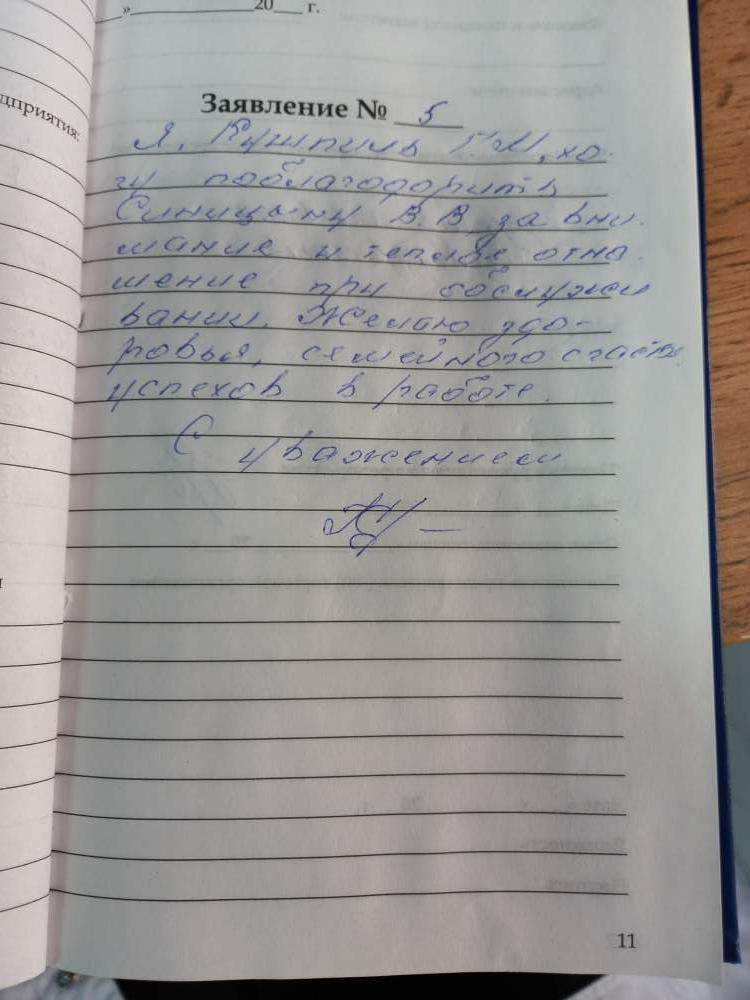 »____________20___ г.
дприятия:
Заявление № 5
Я, Кушпиль Г.М, хо-
чу поблагодорить
Синицыну В.В. за вни-
мание и теплое отно-
шение при обслужи
вании. Желаю здо-
ровья, семейного счастья
успехов в работе.
С уважением
11